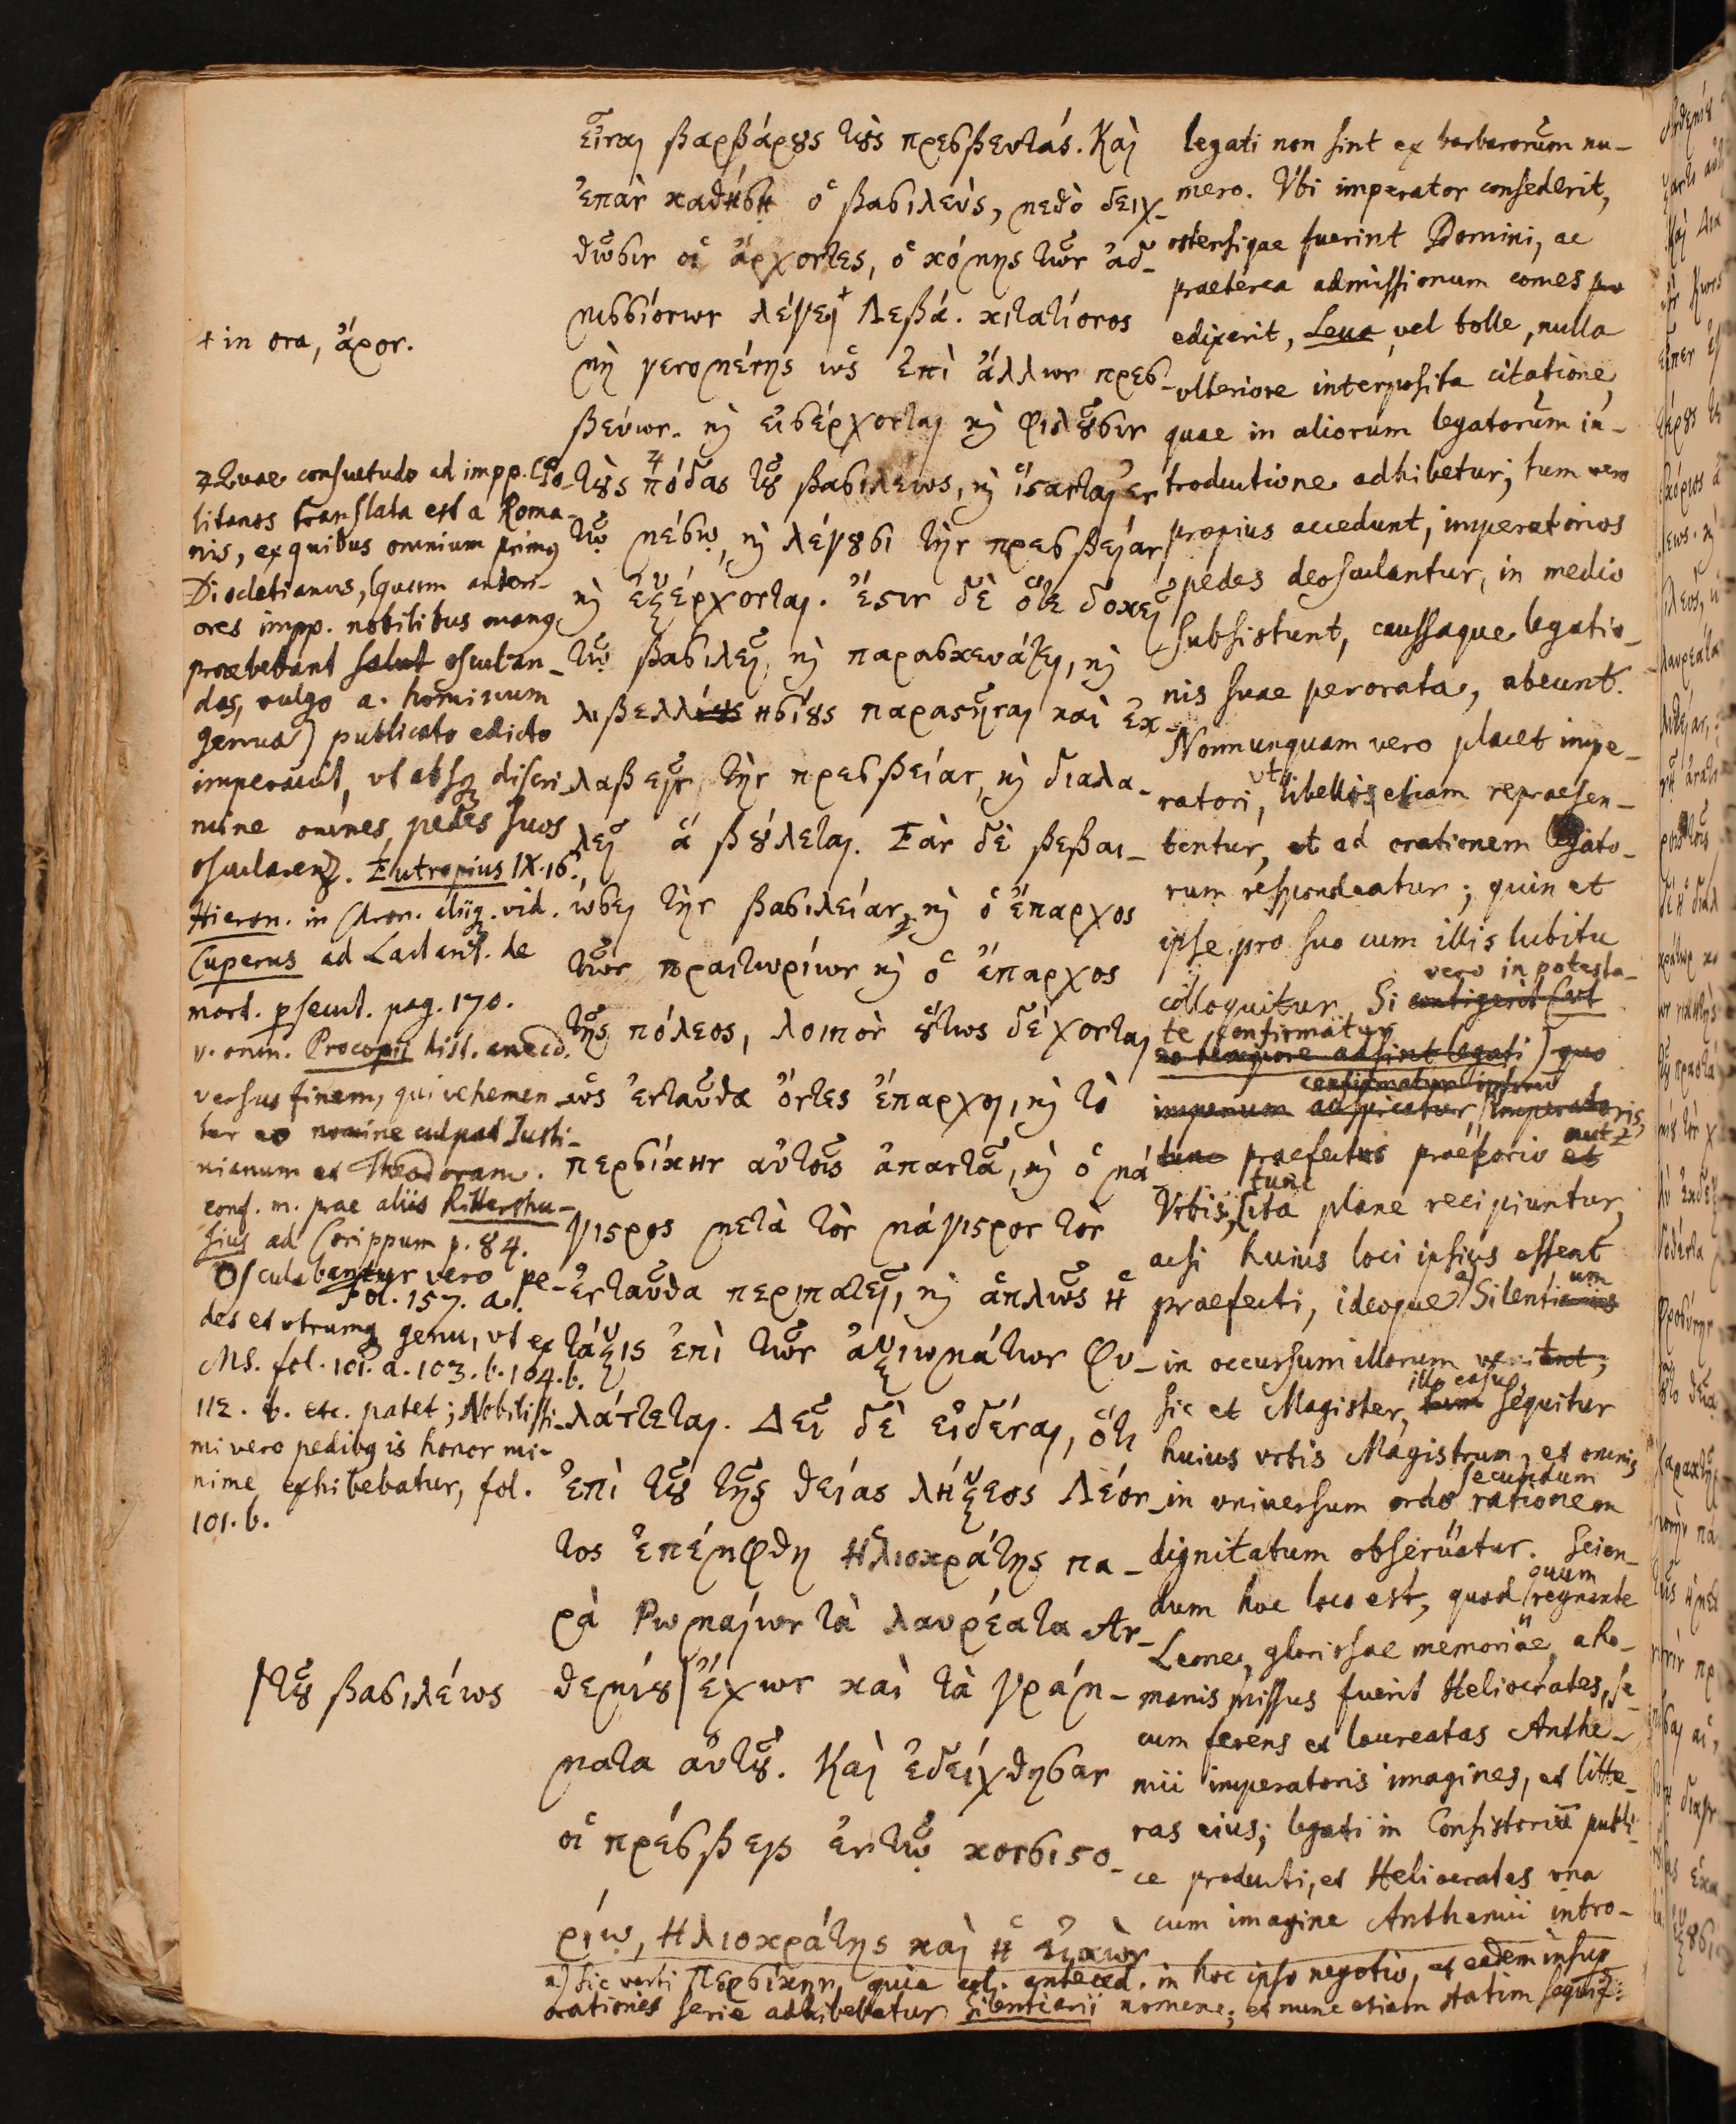 εἶναι βαρβάρȣς τȣ̀ς πρεσβευτάς. Καὶ
ἐπὰν καθήσῃ ὁ βασιλεὺς, μεθὸ δειχ-
θῶσιν οἱ ἄρχοντες, ὁ κόμης τῶν ἀδ-
μισσιόνων λέγει + Λεβά. κιτατίονος
μὴ γενομένης ὡς ἐπὶ ἄλλων πρεσ-
βεύων. κ̀ εἰσέρχονται κ̀ φιλȣ͂σιν
τȣ̀ς πόδας τȣ͂ βασιλέως, κ̀ ἵστανται ἐν
τῷ μέσῳ, κ̀ λέγȣσι τὴν πρεσβείαν,
κ̀ ἐξέρχονται. ἔστιν δὲ ὅτε δοκεῖ
τῷ βασιλεῖ, κ̀ παρασκευάζει, κ̀
λιβελλησίȣς παραστῆναι καὶ ἐκ-
λαβεῖν τὴν πρεσβείαν, κ̀ διαλα-
λεῖ ἃ βȣ́λεται. Ἐὰν δὲ βεβαι-
ώσει τὴν βασιλείαν, κ̀ ὁ ἔπαρχος
τῶν πραιτωρίων κ̀ ὁ ἔπαρχος
τῆς πόλεος, λοιπὸν ȣ̔́τως δέχονται
ὡς ἐνταῦθα ὄντες ἔπαρχοι, κ̀ τὸ
περσίκην αὐτοῖς ἀπαντᾷ, κ̀ ὁ μά-
γιστρος μετὰ τὸν μάγιστρον τὸν
ἐνταῦθα περιπατεῖ, κ̀ ἁπλῶς ἡ
τάξις ἐπὶ τῶν ἀξιωμάτων φυ-
λάττεται. Δεῖ δὲ εἰδέναι, ὅτι
ἐπὶ τȣ͂ τῆς θείας λήξεος Λέον-
τος ἐπέμφθη Ἡλιοκράτης πα-
ρὰ Ρωμαίων τὰ λαυρέατα Ἀν-
θεμίȣ ἔχων καὶ τὰ γράμ-
ματα αὐτȣ͂. Καὶ ἐδείχθησαν
οἱ πρέσβεις ἐν τῷ κονσιστο-
ρίῳ, Ἡλιοκράτης καὶ ἡ εἰκὼν
legati non sint ex barbarorum nu-
mero. Vbi imperator consederit,
ostensique fuerint Domini, ac
praeterea admissionum comes
edixerit, Leua vel tolle, nulla
vlteriore interposita citatione,
quae in aliorum legatorum in-
troductione adhibetur; tum vero
propius accedunt, imperatorios
pedes deosculantur, in medio
subsistunt, caussaque legatio-
nis suae perorata, abeunt.
Nonnunquam vero placet impe-
ratori, vt libellis etiam repraesen-
tentur, et ad orationem legato-
rum respondeatur; quin et
ipse pro suo cum illis lubitu
colloquitur. Si contigerit (vt vero in potesta-
te confirmatur
eo tempore adsint legati) quo
imperium adspicatur, confirmatur imperatoris,
tunc praefectus praetorio et aut
Vrbis, tunc ita plane recipiuntur,
acsi huius loci ipsius essent
praefecti, ideoque a) Silentium
in occursum illorum
sic et Magister, illo casu tum sequitur
huius vrbis Magistrum, et omnis
in vniversum ordo secundum rationem
dignitatum obseruatur. Scien-
dum hoc loco est, quod quum regnante
Leone, gloriosae memoriae, a Ro-
manis missus fuerit Heliocrates, se-
cum ferens et laureatas Anthe-
mii imperatoris imagines, et litte-
ras eius; legati in Consistoriū publi-
ce producti, et Heliocrates vna
cum imagine Anthemii intro-
+ in ora, ἆρον.
Quae consuetudo ad impp. CPo-
litanos translata est a Roma-
nis, ex quibus omnium primus
Diocletianus, (quum anteri-
ores impp. nobilibus manus
praebebant salut osculan-
das, vulgo a. hominum
genua) publicato edicto
imperauit, vt absq3 discri-
mine omnes pedes suos
oscularent. Eutropius IX. 16.,
Hieron. in Chron. aliiq3. vid.
Cuperus ad Lactant. de
mort. psecut. pag. 170.
v. omn. Procopii hist. anecd.
versus finem, qui vehemen-
ter eo nomine culpat Iusti-
nianum et Theodoram.
conf. m. prae aliis Rittershu-
sius ad Corippum p. 84.
Osculabantur vero pe-
fol. 157. a.
des et vtrumq3 genu, vt ex
MS. fol. 101. a. 103. b. 104. b.
112. b. etc. patet; Nobilissi-
mi vero pedibus is honor mi-
nime exhibebatur, fol.
101. b.
τȣ͂ βασιλέως
a) sic verti Περσίκην, quia antecd. in hoc ipso negotio, et eadem insup
orationis serie adhibebatur Silentiarii nomen; et nunc etiam statim